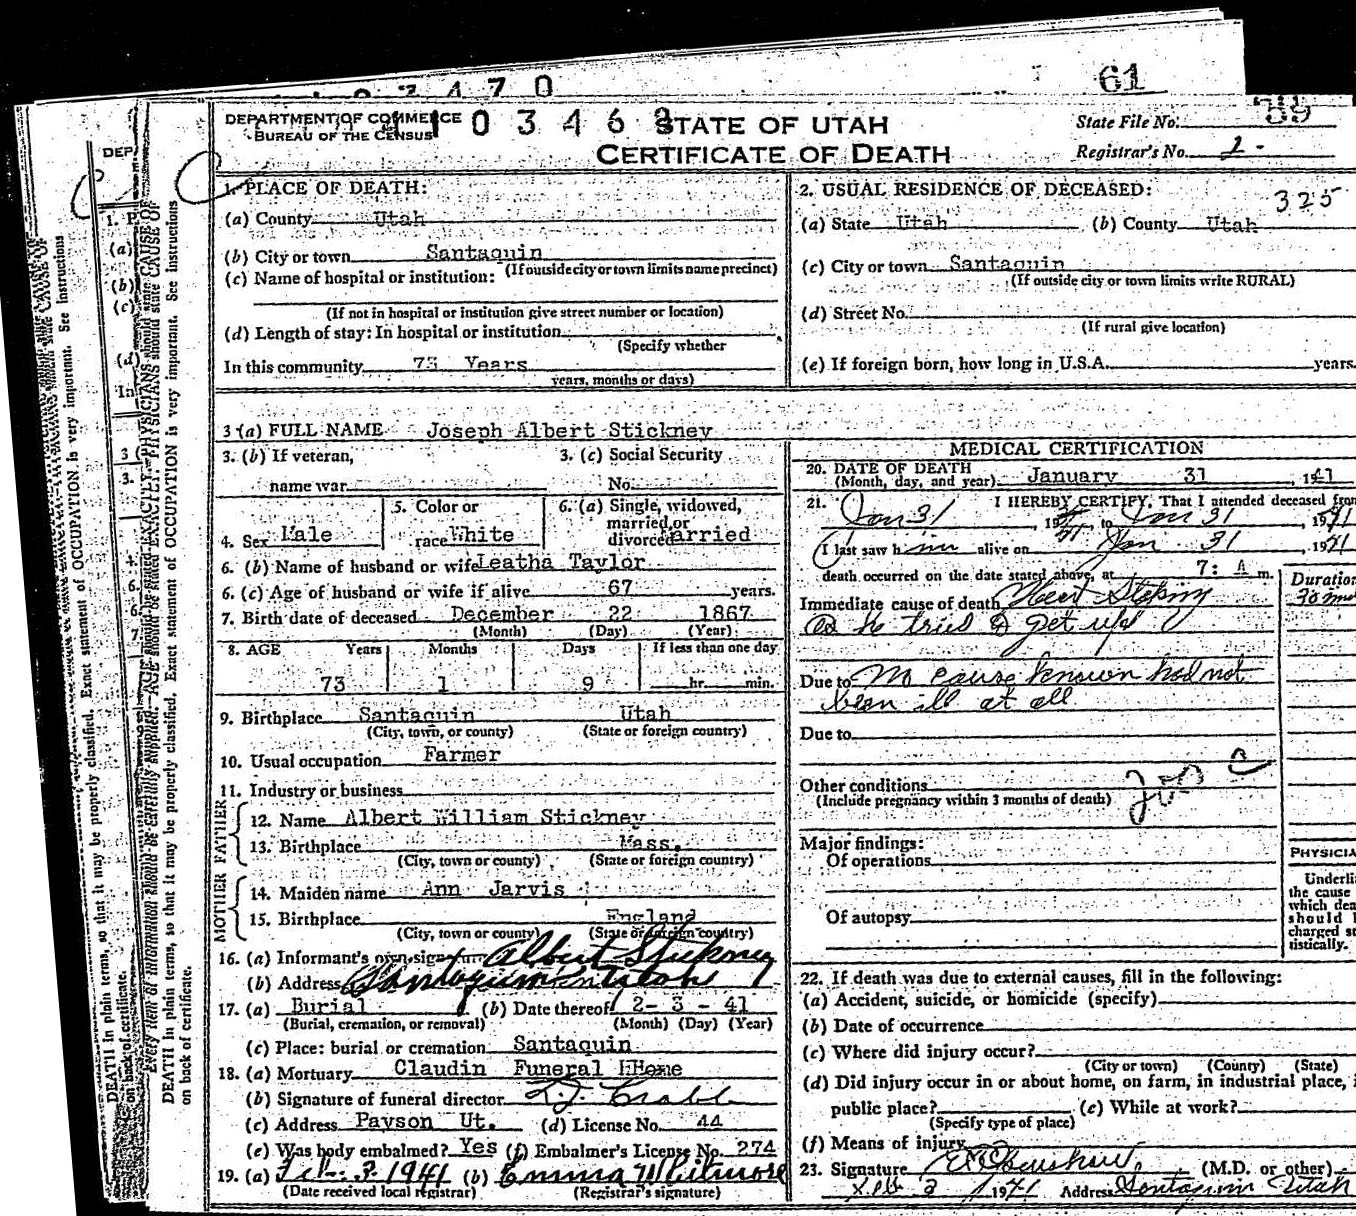 61
DEPARTMENT OF COMMERCE
BUREAU OF THE CENSUS
STATE OF UTAH
CERTIFICATE OF DEATH
State File No. 39
Registrar's No. 1
1. PLACE OF DEATH:
(a) County Utah
(b) City or town Santaquin
(If outside city or town limits name precinct)
(c) Name of hospital or institution:
(If not in hospital or institution give street number or location)
(d) Length of stay: In hospital or institution
(Specify whether
In this community 73 Years
years, months or days)
2. USUAL RESIDENCE OF DECEASED:
325
(a) State Utah (b) County Utah
(c) City or town Santaquin
(If outside city or town limits write RURAL)
(d) Street No.
(If rural give location)
(e) If foreign born, how long in U.S.A. years.
3 (a) FULL NAME Joseph Albert Stickney
3. (b) If veteran, 3. (c) Social Security
name war No.
4. Sex Male 5. Color or race White 6. (a) Single, widowed, married, or divorced Married
6. (b) Name of husband or wife Leatha Taylor
6. (c) Age of husband or wife if alive 67 years.
7. Birth date of deceased December 22 1867
(Month) (Day) (Year)
8. AGE Years Months Days If less than one day
73 1 9 hr. min.
9. Birthplace Santaquin Utah
(City, town, or county) (State or foreign country)
10. Usual occupation Farmer
11. Industry or business
FATHER
12. Name Albert William Stickney
13. Birthplace Mass.
(City, town or county) (State or foreign country)
MOTHER
14. Maiden name Ann Jarvis
15. Birthplace England
(City, town or county) (State or foreign country)
16. (a) Informant's own signature Albert Stickney
(b) Address Santaquin Utah
17. (a) Burial (b) Date thereof 2-3-41
(Burial, cremation, or removal) (Month) (Day) (Year)
(c) Place: burial or cremation Santaquin
18. (a) Mortuary Claudin Funeral Home
(b) Signature of funeral director
(c) Address Payson Ut. (d) License No. 44
(e) Was body embalmed? Yes (f) Embalmer's License No. 274
19. (a) Feb. 3. 1941 (b) Emma Whitmore
(Date received local registrar) (Registrar's signature)
MEDICAL CERTIFICATION
20. DATE OF DEATH
(Month, day, and year) January 31, 1941
21. I HEREBY CERTIFY, That I attended deceased from
Jan 31, 1941 to Jan 31, 1941
I last saw him alive on Jan 31, 1941
death occurred on the date stated above, at 7: A m.
Duration
Immediate cause of death
as he tried to get up
Due to no cause known had not
been ill at all
Due to
Other conditions
(Include pregnancy within 3 months of death)
Major findings:
Of operations
Of autopsy
PHYSICIA
Underli
the cause
which dea
should
charged st
tistically.
22. If death was due to external causes, fill in the following:
(a) Accident, suicide, or homicide (specify)
(b) Date of occurrence
(c) Where did injury occur?
(City or town) (County) (State)
(d) Did injury occur in or about home, on farm, in industrial place, i
public place? (e) While at work?
(Specify type of place)
(f) Means of injury
23. Signature (M.D. or other)
Feb 3 1941 Address Santaquin Utah